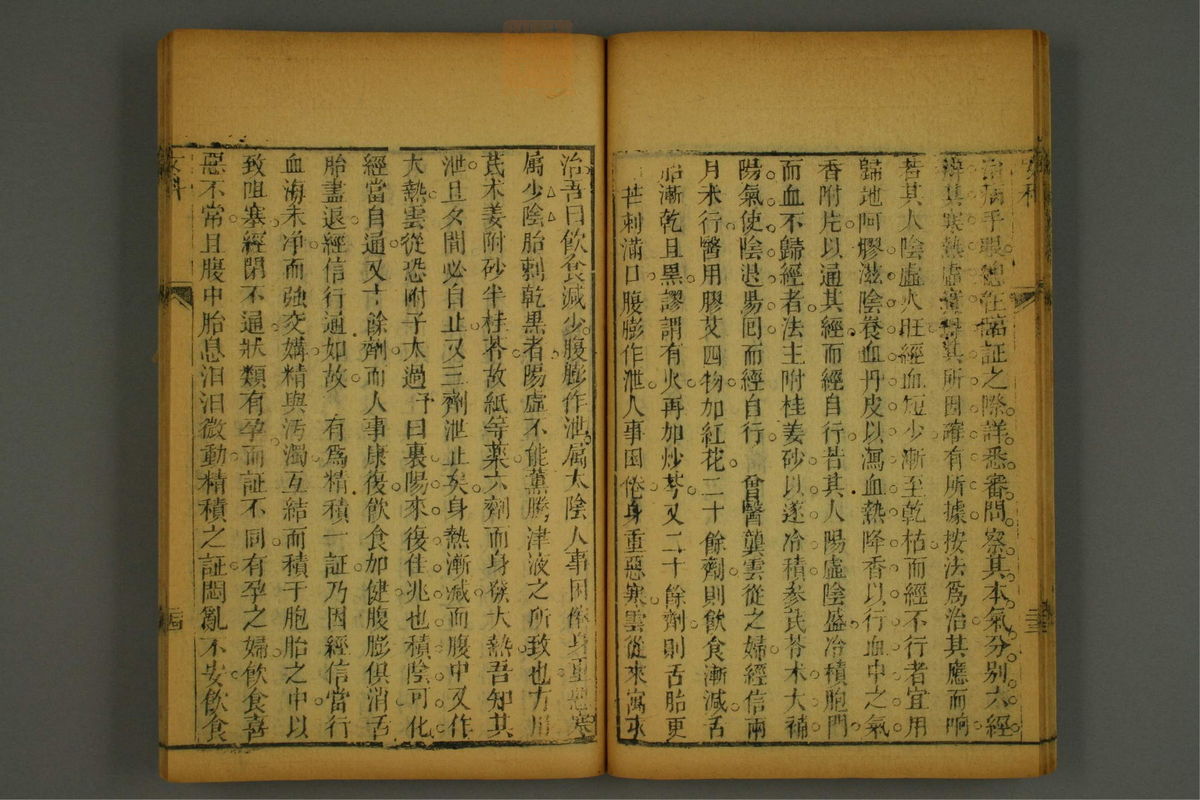 治病手眼總在臨証之際詳悉審問察其本氣分別六經
辨其寒熱虛實得其所因確有所據按法爲治其應而响
若其人陰虛火旺經血短少漸至乾枯而經不行者宜用
歸地呵膠滋陰養血丹皮以瀉血熱降香以行血中之氣
香附片以通其經而經自行若其人陽虛陰盛冷積胞門
而血不歸經者法主附桂姜砂以逐冷積參芪苓术大補
陽氣使陰退陽回而經自行 曾醫龔雲從之婦經信兩
月未行醫用膠艾四物加紅花二十餘劑則飲食漸減舌
胎漸乾且黑謬謂有火再加炒芩又二十餘劑則舌胎更
芒刺滿口腹膨作泄人事困倦身重惡寒雲從來寓求
治吾曰飲食減少腹膨作泄属太陰人事困倦身重惡寒
属少陰胎刺乾黑者陽虛不能薰騰津液之所致也方用
芪术姜附砂半桂苓故紙等藥六劑而身發大熱吾知其
泄且夕間必自止又三劑泄止矣身熱漸減而腹中又作
大熱雲從恐附子太過予曰裏陽來復佳兆也積陰可化
經當自通又十餘劑而人事康復飲食加健腹膨俱消舌
胎盡退經信行通如故 有爲精積一証乃因經信當行
血海未净而強交媾精與汚濁互結而積于胞胎之中以
致阻塞經閉不通狀類有孕而証不同有孕之婦飲食喜
惡不常且腹中胎息汩汩微動精積之証悶亂不安飲食
女科
二十三
女科
二十四